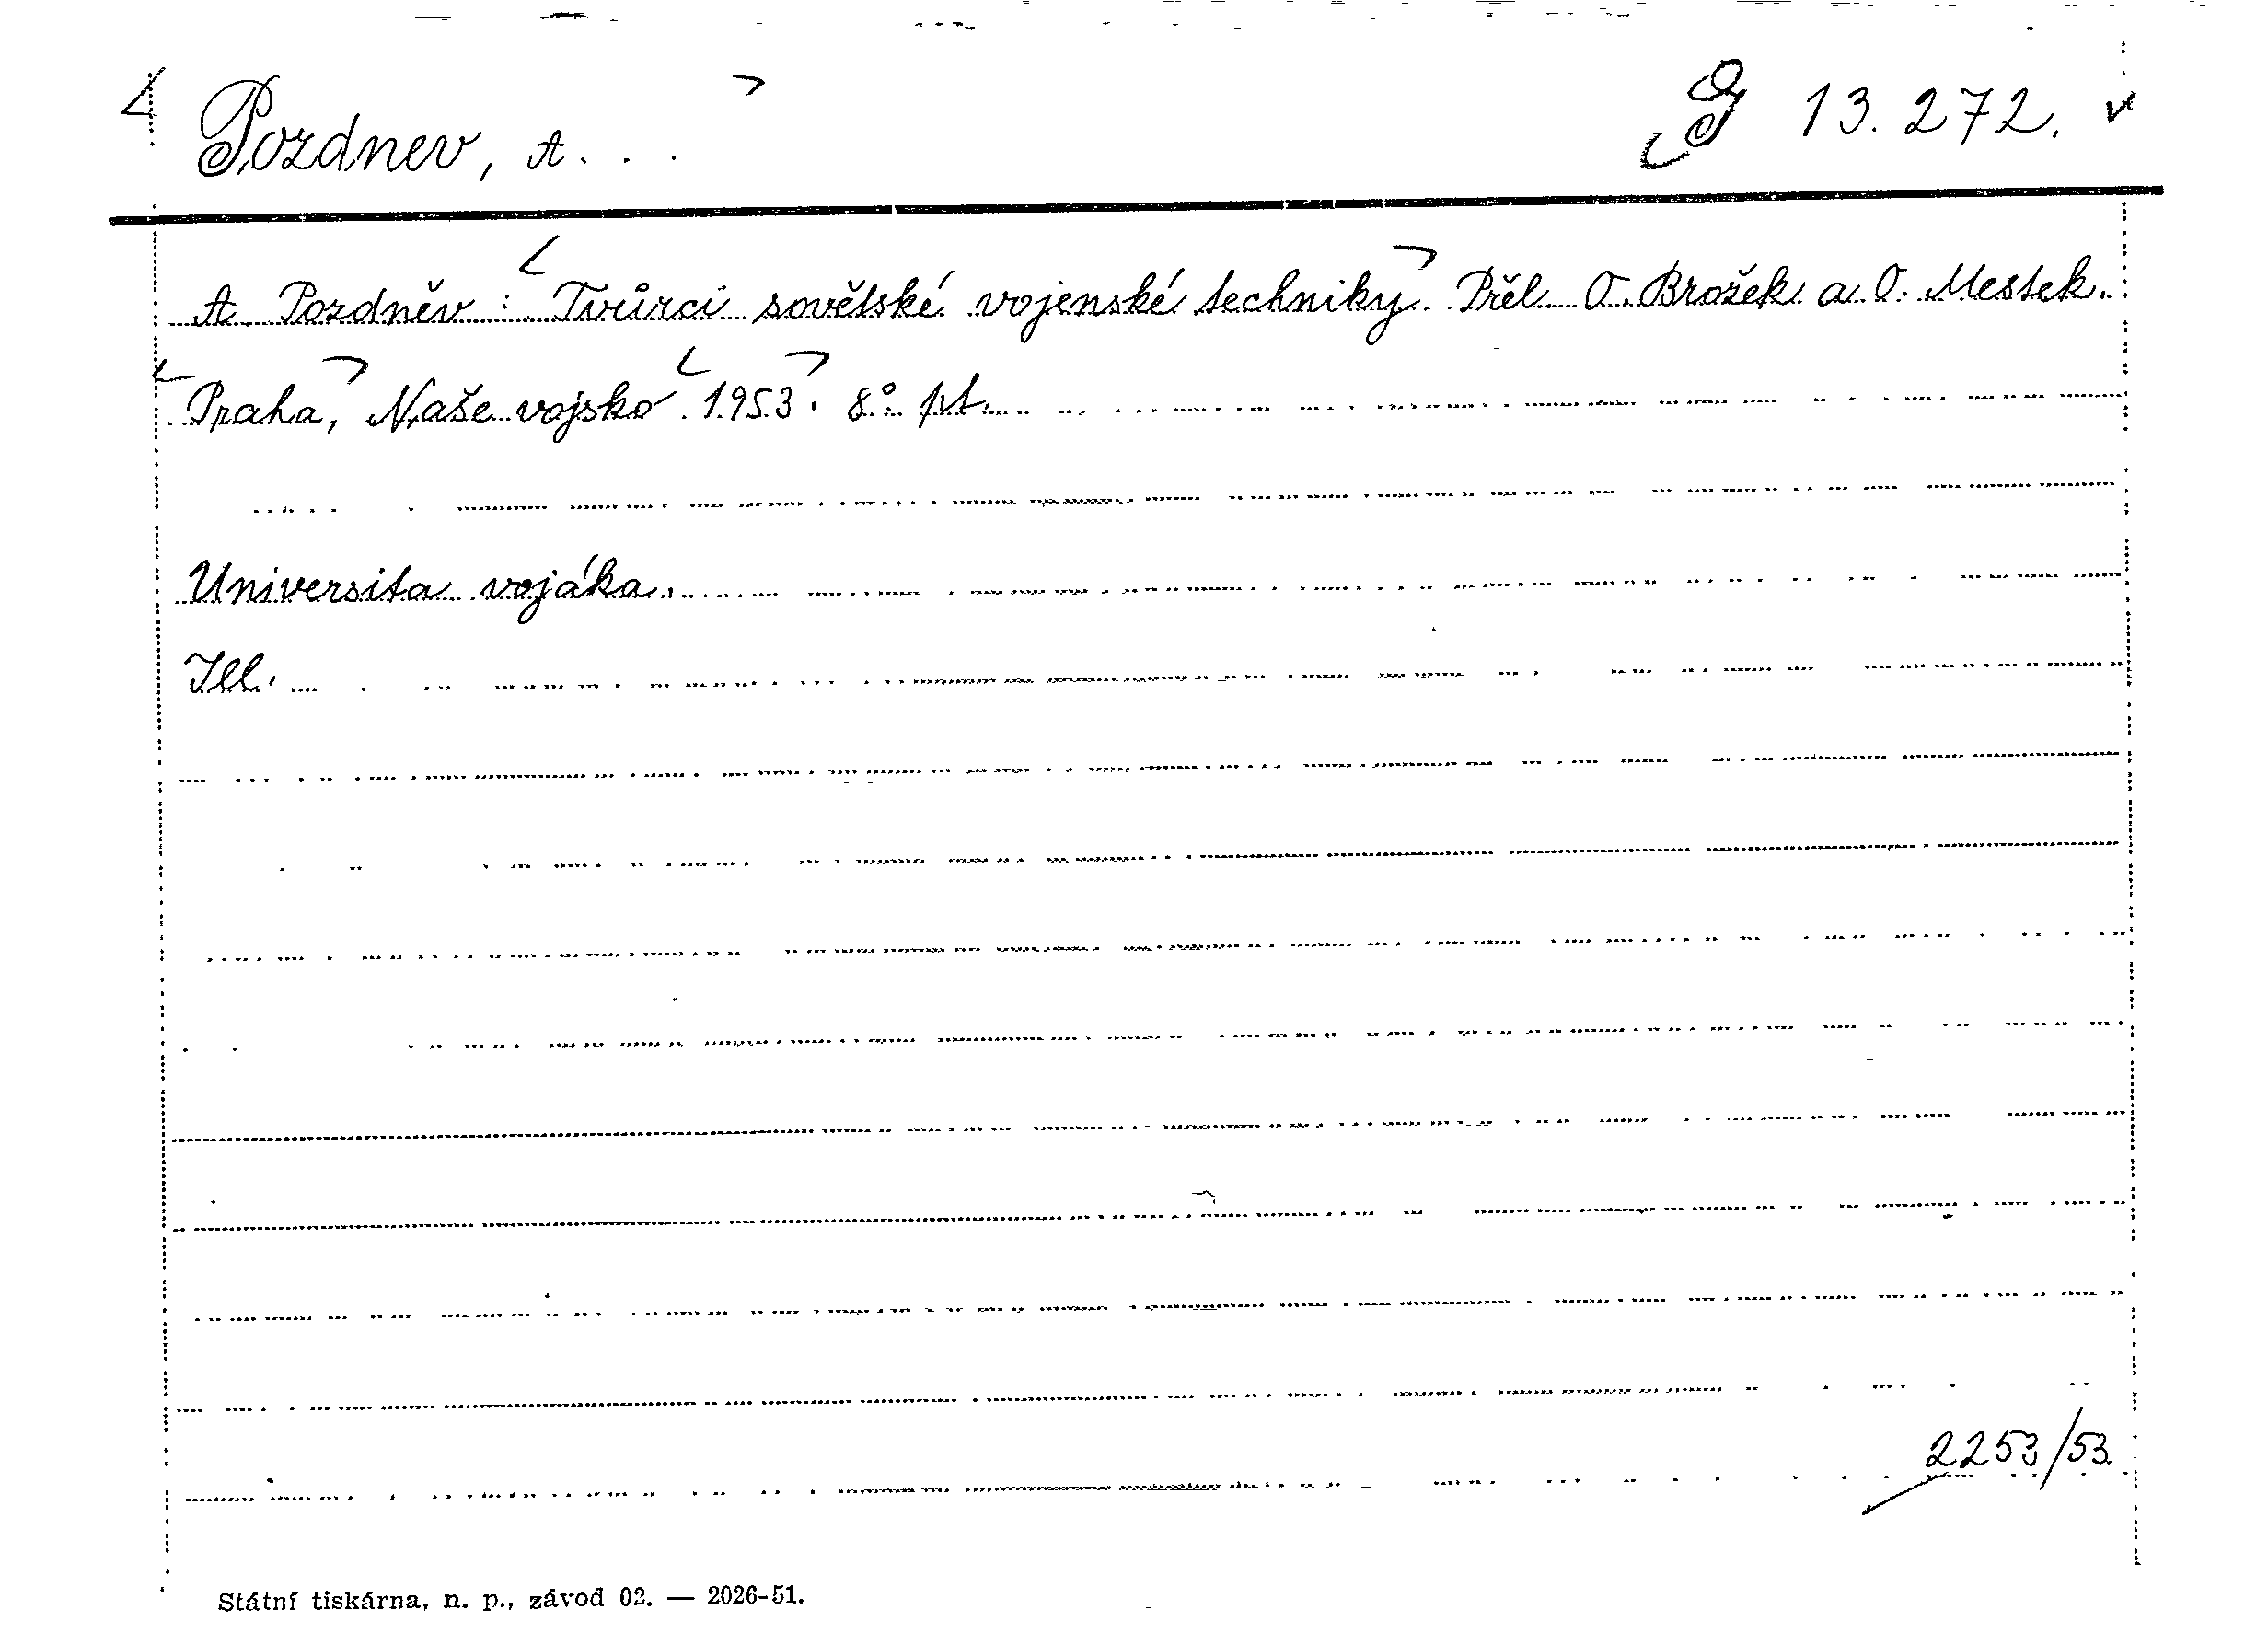 Pozdnev, A. . . G 13.272.
A. Pozdněv : Tvůrci sovětské vojenské techniky. Přěl. O. Brožek a O. Mestek.
Praha, Naše vojsko 1953. 8° pt.
Universita vojáka.
Ill.
2253/53.
Státní tiskárna, n. p., závod 02. — 2026-51.